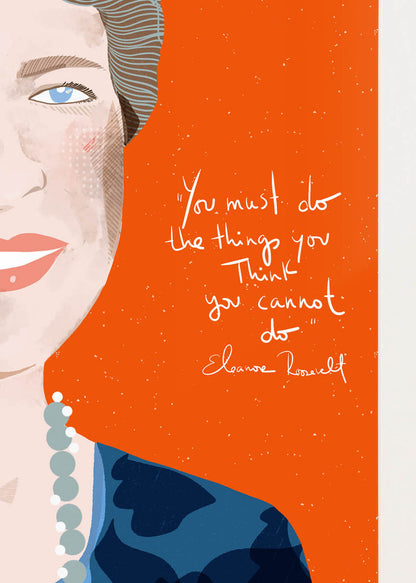 "You must do
the things you
Think
you cannot
do"
Eleanor Roosevelt